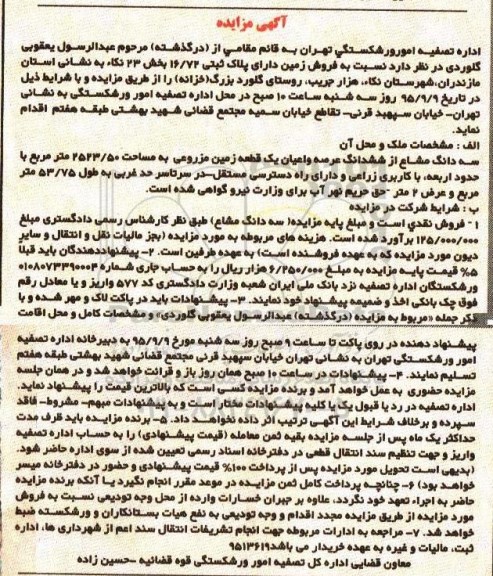 آگهی مزایده
اداره تصفیه امورورشکستگی تهران به قائم مقامی از (درگذشته) مرحوم عبدالرسول یعقوبی
گلوردی در نظر دارد نسبت به فروش زمین دارای پلاک ثبتی ۱۶/۷۲ بخش ۲۳ نکاء به نشانی استان
مازندران،شهرستان نکاء، هزار جریب، روستای گلورد بزرگ(خزانه) را از طریق مزایده و با شرایط ذیل
در تاریخ ۹۵/۹/۹ روز سه شنبه ساعت ۱۰ صبح در محل اداره تصفیه امور ورشکستگی به نشانی
تهران- خیابان سپهبد قرنی- تقاطع خیابان سمیه مجتمع قضائی شهید بهشتی طبقه هفتم اقدام
نماید.
الف : مشخصات ملک و محل آن
سه دانگ مشاع از ششدانگ عرصه واعیان یک قطعه زمین مزروعی به مساحت ۲۵۲۳/۵۰ متر مربع با
حدود اربعه، با کاربری زراعی و دارای راه دسترسی مستقل–در سرتاسر حد غربی به طول ۵۳/۷۵ متر
مربع و عرض ۲ متر -حق حریم نهر آب برای وزارت نیرو گواهی شده است.
ب : شرایط شرکت در مزایده
۱- فروش نقدی است و مبلغ پایه مزایده( سه دانگ مشاع) طبق نظر کارشناس رسمی دادگستری مبلغ
۱۲۵/۰۰۰/۰۰۰ برآورد شده است. هزینه های مربوطه به مورد مزایده (بجز مالیات نقل و انتقال و سایر
دیون مورد مزایده که به عهده فروشنده است) به عهده طرفین است. ۲- پیشنهاددهندگان باید قبلاً
۵% قیمت پایه مزایده به مبلغ ۶/۲۵۰/۰۰۰ هزار ریال را به حساب جاری شماره ۰۱۰۸۰۷۳۳۹۰۰۰۴
ورشکستگان اداره تصفیه نزد بانک ملی ایران شعبه وزارت دادگستری کد ۵۷۷ واریز و یا معادل رقم
فوق چک بانکی اخذ و ضمیمه پیشنهاد خود نمایند. ۳- پیشنهادات باید در پاکت لاک و مهر شده و با
ذکر جمله «مربوط به مزایده (درگذشته) عبدالرسول یعقوبی گلوردی» و مشخصات کامل و محل اقامت
پیشنهاد دهنده در روی پاکت تا ساعت ۹ صبح روز سه شنبه مورخ ۹۵/۹/۹ به دبیرخانه اداره تصفیه
امور ورشکستگی تهران به نشانی تهران خیابان سپهبد قرنی مجتمع قضائی شهید بهشتی طبقه هفتم
تسلیم نمایند. ۴- پیشنهادات در ساعت ۱۰ صبح همان روز باز و قرائت خواهد شد و در همان جلسه
مزایده حضوری به عمل خواهد آمد و برنده مزایده کسی است که بالاترین قیمت را پیشنهاد نماید.
اداره تصفیه در رد یا قبول یک یا کلیه پیشنهادات مختار است و به پیشنهادات مبهم- مشروط- فاقد
سپرده و برخلاف شرایط این آگهی ترتیب اثر داده نخواهد داد. ۵- برنده مزایده باید ظرف مدت
حداکثر یک ماه پس از جلسه مزایده بقیه ثمن معامله (قیمت پیشنهادی) را به حساب اداره تصفیه
واریز و جهت تنظیم سند انتقال قطعی در دفترخانه اسناد رسمی تعیین شده از سوی اداره حاضر شود.
(بدیهی است تحویل مورد مزایده پس از پرداخت ۱۰۰% قیمت پیشنهادی و حضور در دفترخانه میسر
خواهد بود) ۶- چنانچه پرداخت کامل ثمن مزایده در موعد مقرر انجام نگیرد یا آنکه برنده مزایده
حاضر به اجراء تعهد خود نگردد، علاوه بر جبران خسارات وارده از محل وجه تودیعی نسبت به فروش
مورد مزایده از طریق مزایده مجدد اقدام و وجه تودیعی به نفع هیات بستانکاران و ورشکسته ضبط
خواهد شد. ۷- مراجعه به ادارات مربوطه جهت انجام تشریفات انتقال سند اعم از شهرداری ها، اداره
ثبت، مالیات و غیره به عهده خریدار می باشد۹۵۱۳۶۱۹
معاون قضایی اداره کل تصفیه امور ورشکستگی قوه قضائیه –حسین زاده